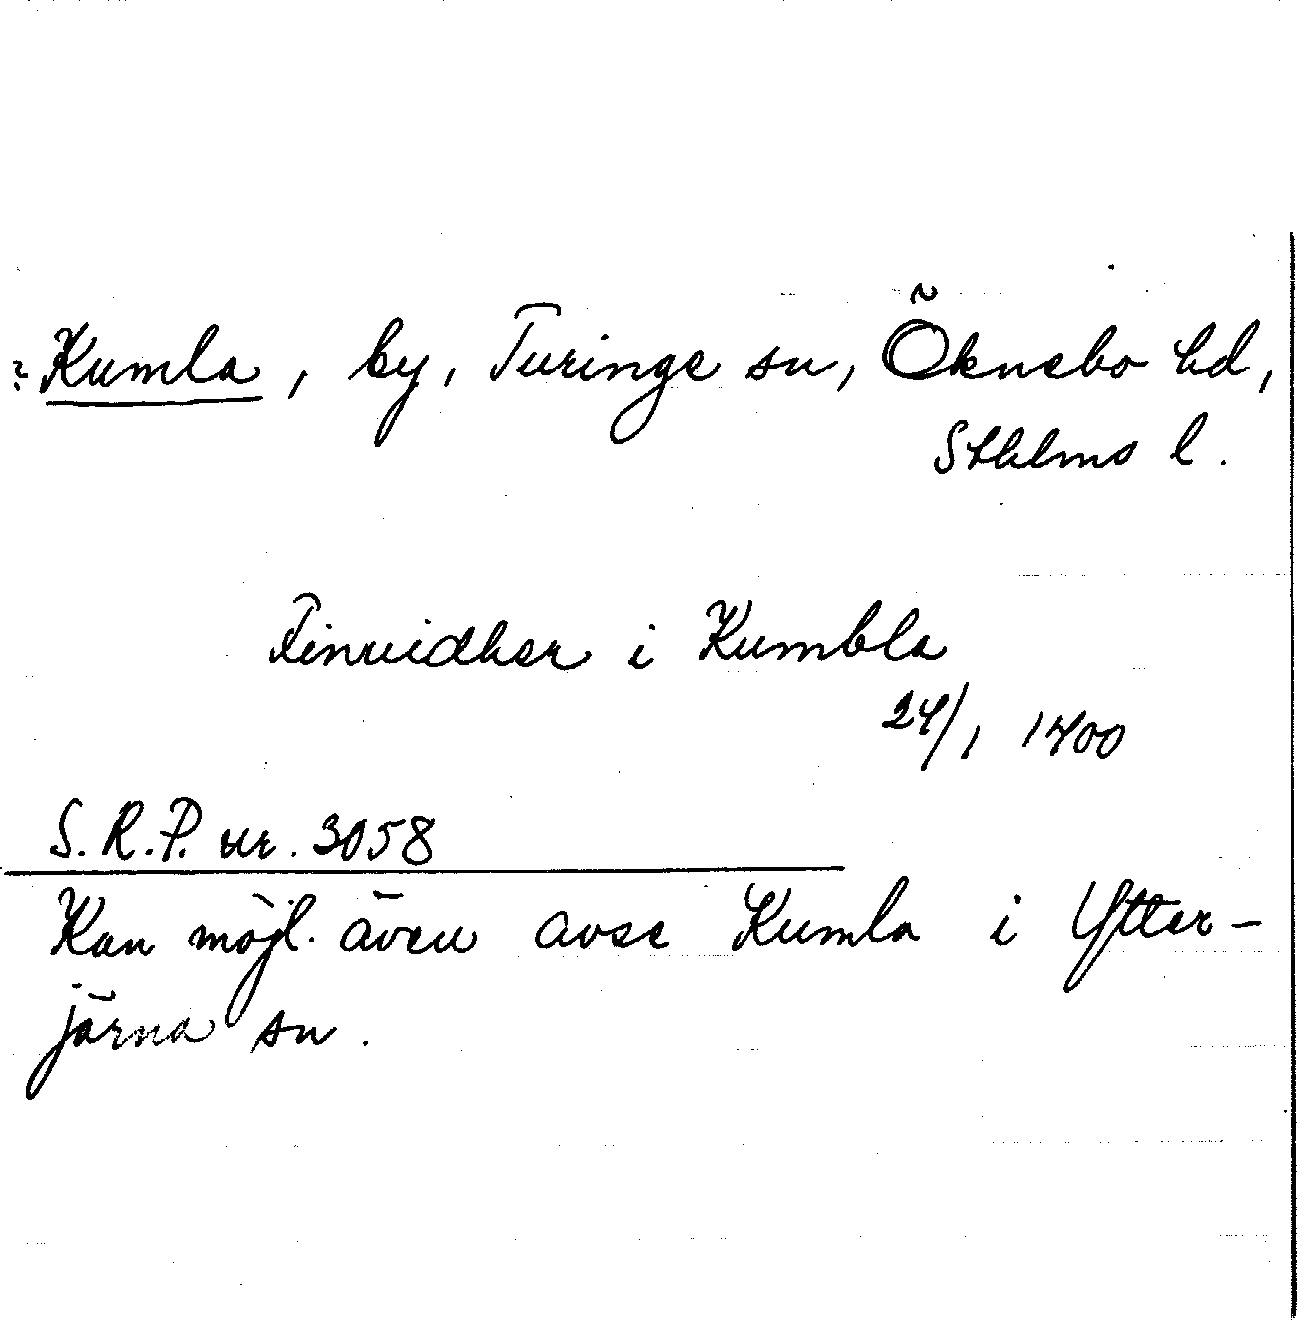 ? Kumla, by, Turinge sn, Öknebo hd,
Sthlms l.
Finvidher i Kumbla
24/1 1400
S. R. P. nr. 3058
Kan möjl. även avse Kumla i Ytter-
järna sn.